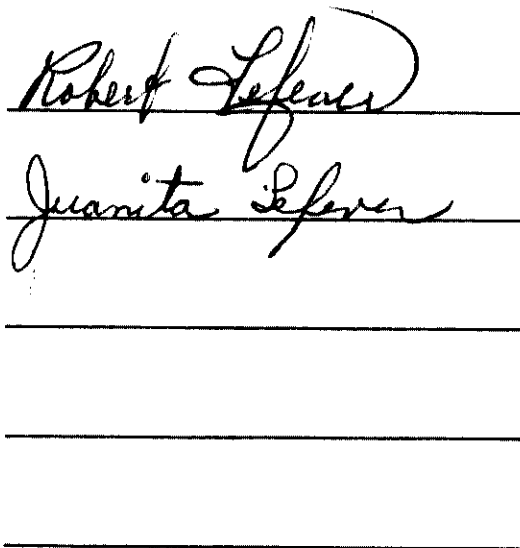 Robert Lefever
Juanita Lefever